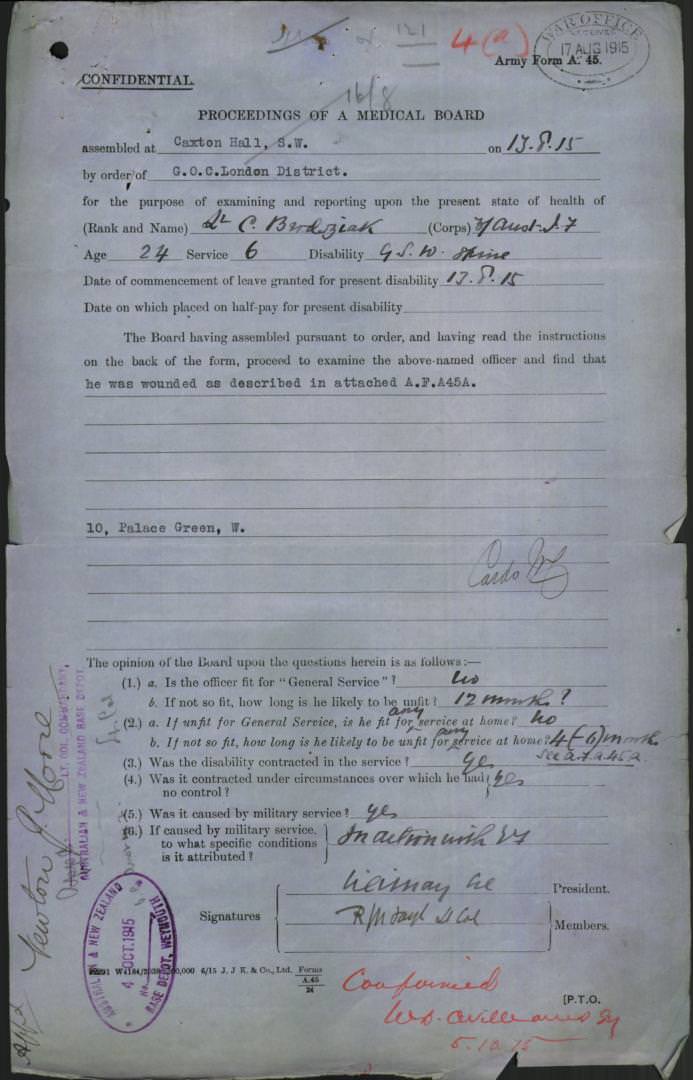 121
4(a)
WAR OFFICE
17 AUG 1915
Army Form A. 45.
CONFIDENTIAL.
16/8
PROCEEDINGS OF A MEDICAL BOARD
assembled at Caxton Hall, S.W. on 13.8.15
by order of G.O.C.London District.
for the purpose of examining and reporting upon the present state of health of
(Rank and Name) Lt C. Brodziak (Corps) 3/ Aust. I. F
Age 24 Service 6 Disability G.S.W. Spine
Date of commencement of leave granted for present disability 13.8.15
Date on which placed on half-pay for present disability
The Board having assembled pursuant to order, and having read the instructions
on the back of the form, proceed to examine the above-named officer and find that
he was wounded as described in attached A.F.A45A.
10, Palace Green, W.
Cards
The opinion of the Board upon the questions herein is as follows:—
(1.) a. Is the officer fit for "General Service"? No
b. If not so fit, how long is he likely to be unfit? 12 months ?
(2.) a. If unfit for General Service, is he fit for any service at home? No
b. If not so fit, how long is he likely to be unfit for any service at home? 4 (-6) months
see A.F.A45A.
(3.) Was the disability contracted in the service? Yes
(4.) Was it contracted under circumstances over which he had no control? Yes
(5.) Was it caused by military service? Yes
(6.) If caused by military service, to what specific conditions is it attributed? In action with
Signatures
President.
Members.
W4184/ 6/15 J. J. K. & Co., Ltd. Forms A.45 24
[P.T.O.
Confirmed
5.10.15
Newton J. Moore
LT. COL. COMMANDANT,
AUSTRALIAN & NEW ZEALAND BASE DEPOT,
AUSTRALIAN & NEW ZEALAND
4 OCT. 1915
BASE DEPOT, WEYMOUTH